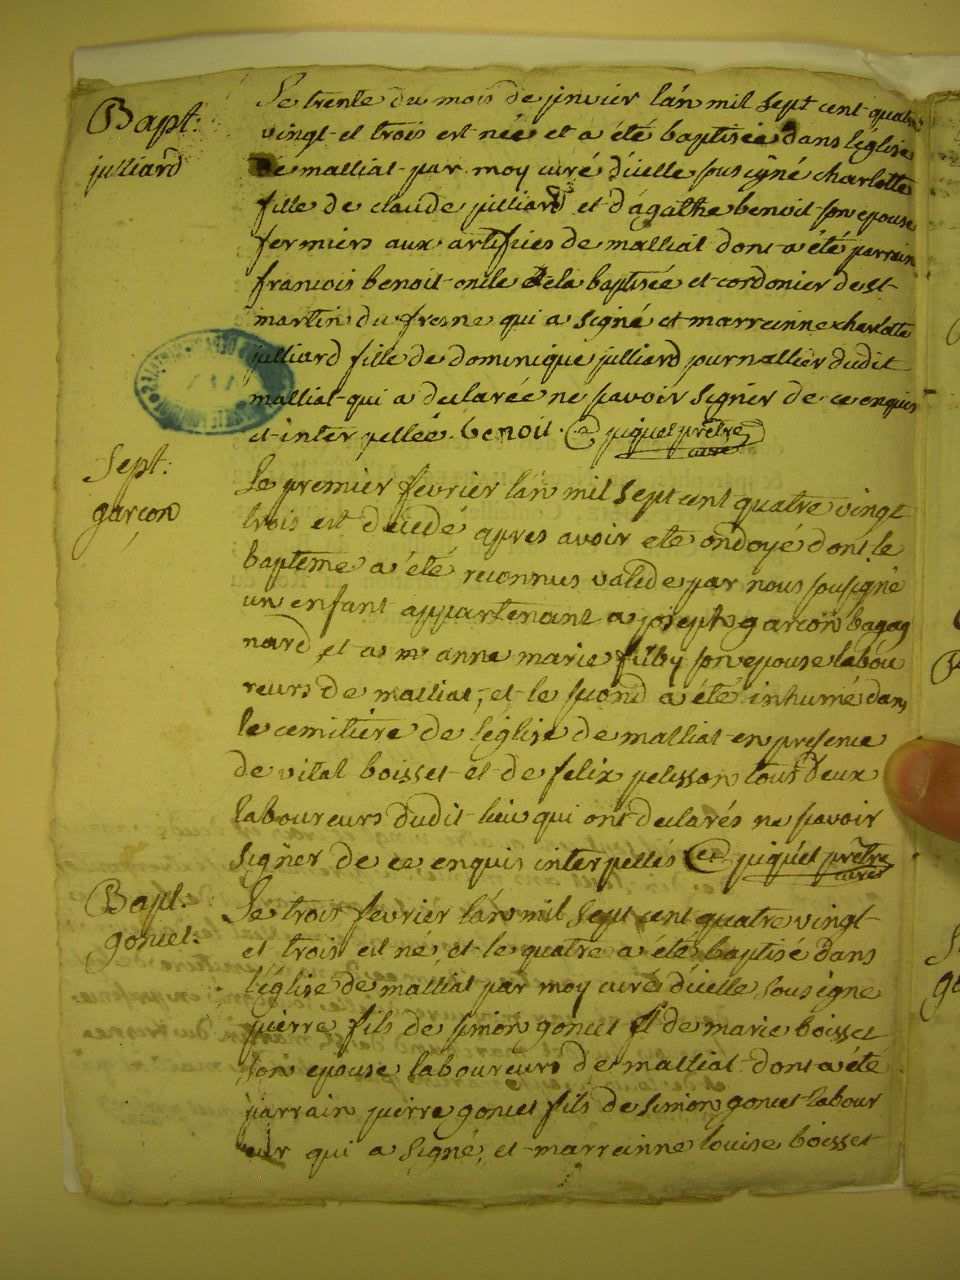 Bapt:
julliard
Le trente du mois de janvier l'an mil sept cent quatre
vingt et trois est née et a été baptisée dans l'église
de malliat par moy curé d'icelle sousigné charlotte
fille de claude julliard et d'agathe benoit son epouse
fermiers aux artifices de malliat dont a été parrain
francois benoit oncle de la baptisée et cordonier de st
martin du fresne qui a signé et marrainne charlotte
julliard fille de dominique julliard journallier dudit
malliat qui a declarée ne savoir signer de ce enquise
et interpellée. benoit. piquet prêtre
curé
Sept:
garcon
Le premier février l'an mil sept cent quatre vingt
trois est décedé apres avoir eté ondoyé dont le
bapteme a été reconnus valide par nous sousigné
un enfant appartenant a joseph garcon bagag
nard et a anne marie filby son epouse labou
reurs de malliat, et le second a été inhumé dans
le cemitière de l'église de malliat en presence
de vital boisset et de felix pelisson tous deux
laboureurs dudit lieu qui ont declarés ne savoir
signer de ce enquis interpellés piquet prêtre
curé
Bapt:
gonet:
Le trois fevrier l'an mil sept cent quatre vingt
et trois est né, et le quatre a eté baptisé dans
l'église de malliat par moy curé d'icelle sousigné
pierre fils de simon gonet et de marie boisset
son epouse laboureurs de malliat dont a été
parrain pierre gonet fils de simon gonet labour
eur qui a signé, et marrainne louise boisset